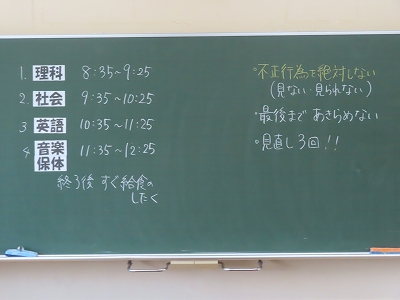 1. 理科 8:35~9:25
2. 社会 9:35~10:25
3 英語 10:35~11:25
4 音楽 保体 11:35~12:25
終了後 すぐ給食の
したく
・不正行為を絶対しない
(見ない・見られない)
・最後まで あきらめない
・見直し3回!!